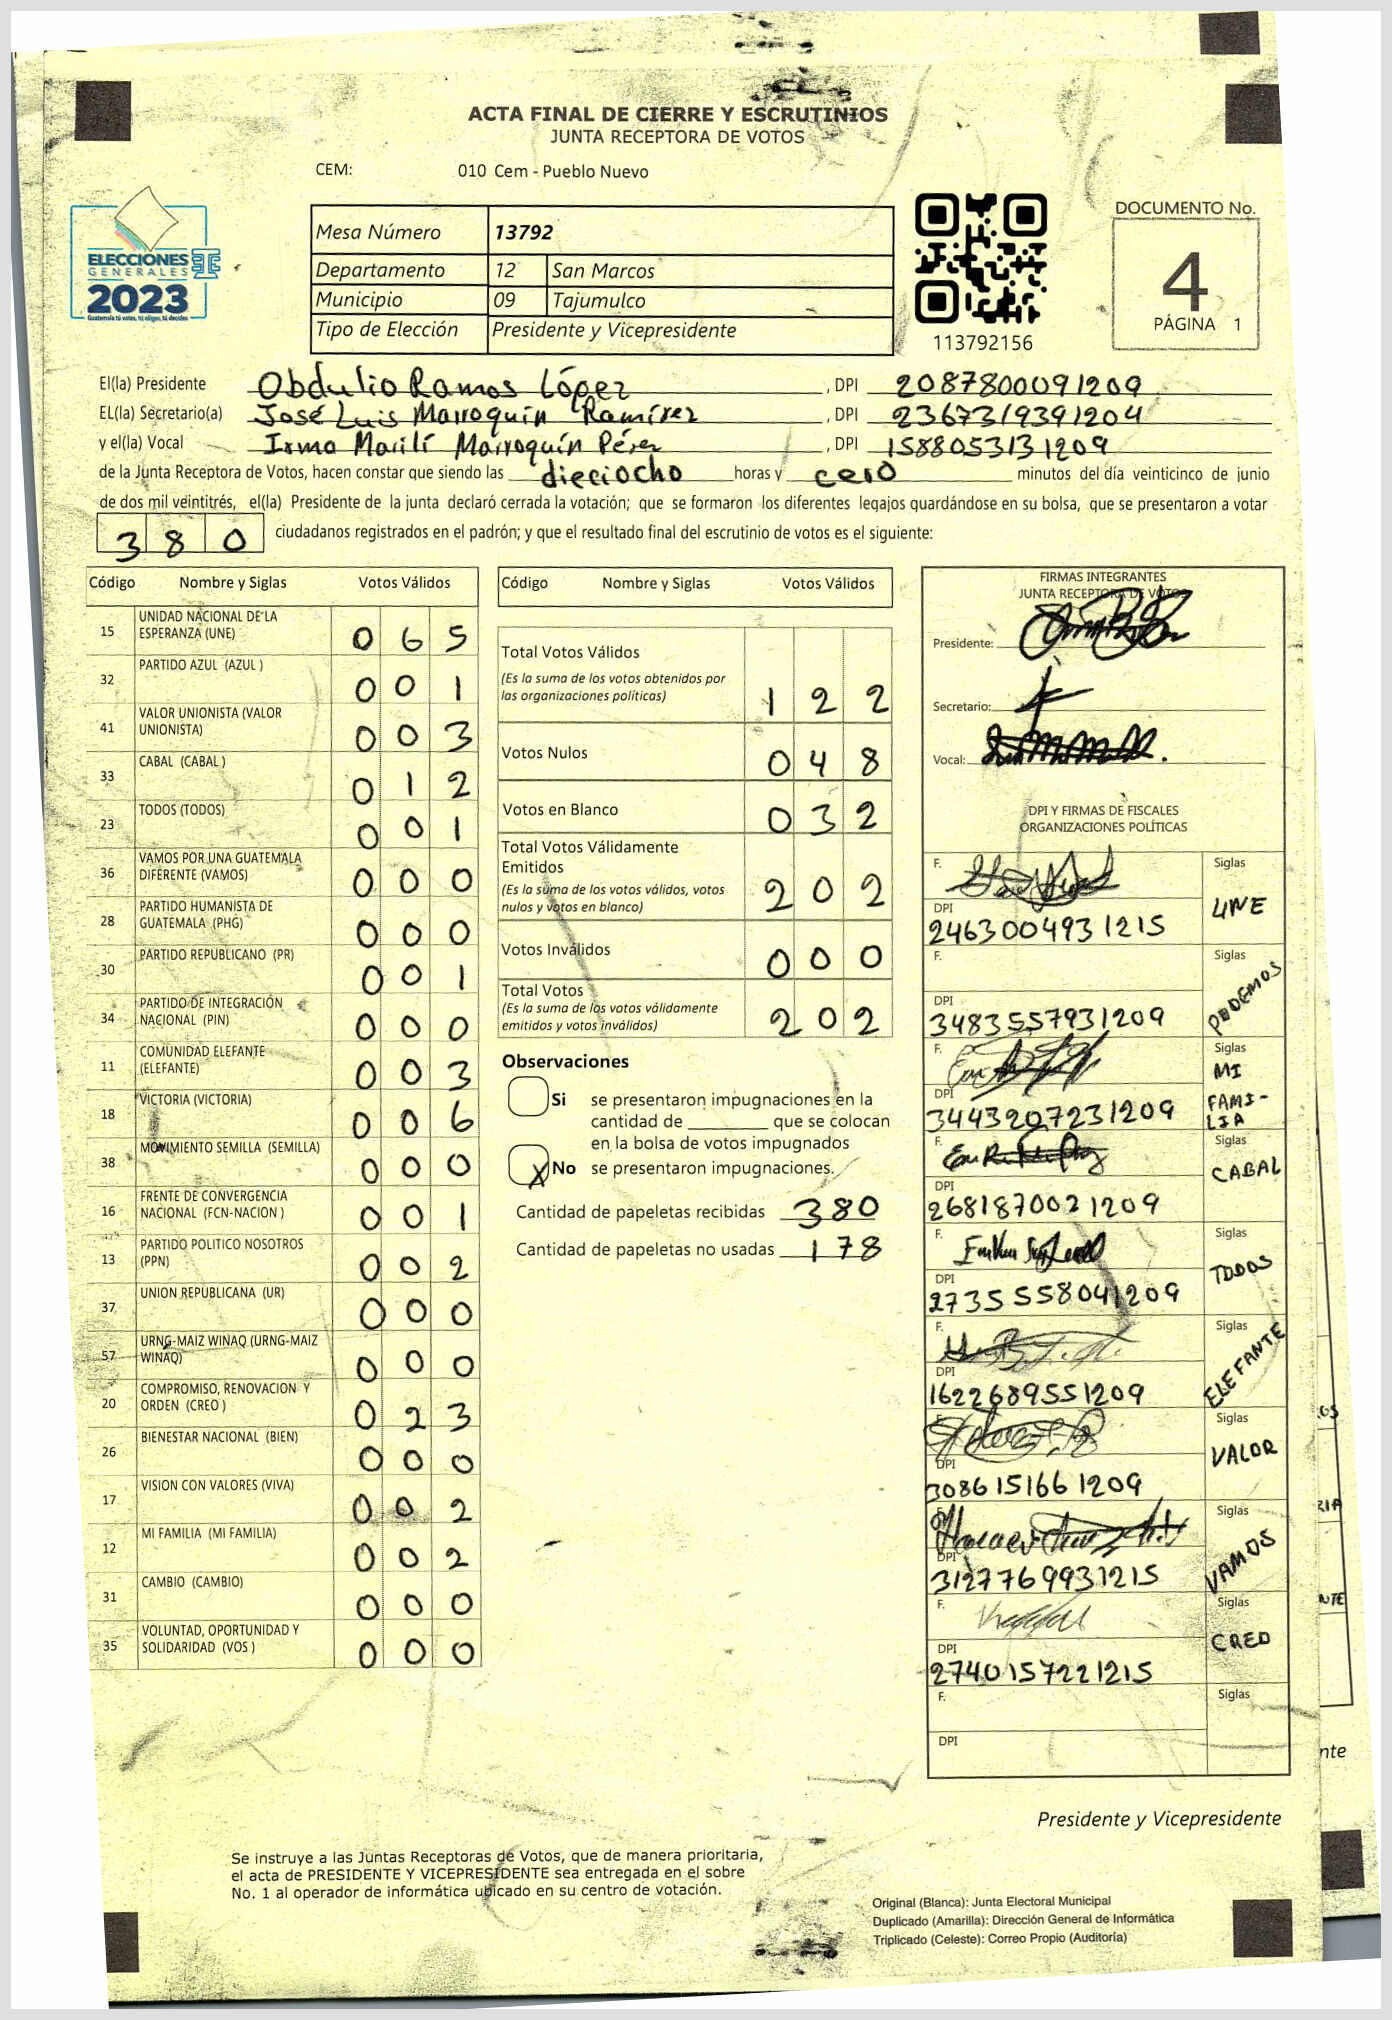 ACTA FINAL DE CIERRE Y ESCRUTINIOS
JUNTA RECEPTORA DE VOTOS
CEM: 010 Cem - Pueblo Nuevo
ELECCIONES
GENERALES
2023
Guatemala tú votas, tú eliges, tú decides
Mesa Número 13792
Departamento 12 San Marcos
Municipio 09 Tajumulco
Tipo de Elección Presidente y Vicepresidente
113792156
DOCUMENTO No.
4
PÁGINA 1
El(la) Presidente Obdulio Ramos López, DPI 2087800091209
EL(la) Secretario(a) José Luis Marroquín Ramírez, DPI 2367319391204
y el(la) Vocal Irma Marilí Marroquín Pérez, DPI 1588053131209
de la Junta Receptora de Votos, hacen constar que siendo las dieciocho horas y cero minutos del día veinticinco de junio
de dos mil veintitrés, el(la) Presidente de la junta declaró cerrada la votación; que se formaron los diferentes legajos guardándose en su bolsa, que se presentaron a votar
380 ciudadanos registrados en el padrón; y que el resultado final del escrutinio de votos es el siguiente:
Código Nombre y Siglas Votos Válidos
15 UNIDAD NACIONAL DE LA
ESPERANZA (UNE) 065
32 PARTIDO AZUL (AZUL ) 001
41 VALOR UNIONISTA (VALOR
UNIONISTA) 003
33 CABAL (CABAL ) 012
23 TODOS (TODOS) 001
36 VAMOS POR UNA GUATEMALA
DIFERENTE (VAMOS) 000
28 PARTIDO HUMANISTA DE
GUATEMALA (PHG) 000
30 PARTIDO REPUBLICANO (PR) 001
34 PARTIDO DE INTEGRACIÓN
NACIONAL (PIN) 000
11 COMUNIDAD ELEFANTE
(ELEFANTE) 003
18 VICTORIA (VICTORIA) 006
38 MOVIMIENTO SEMILLA (SEMILLA) 000
16 FRENTE DE CONVERGENCIA
NACIONAL (FCN-NACION ) 001
13 PARTIDO POLITICO NOSOTROS
(PPN) 002
37 UNION REPUBLICANA (UR) 000
57 URNG-MAIZ WINAQ (URNG-MAIZ
WINAQ) 000
20 COMPROMISO, RENOVACION Y
ORDEN (CREO ) 023
26 BIENESTAR NACIONAL (BIEN) 000
17 VISION CON VALORES (VIVA) 002
12 MI FAMILIA (MI FAMILIA) 002
31 CAMBIO (CAMBIO) 000
35 VOLUNTAD, OPORTUNIDAD Y
SOLIDARIDAD (VOS ) 000
Código Nombre y Siglas Votos Válidos
Total Votos Válidos
(Es la suma de los votos obtenidos por
las organizaciones políticas) 122
Votos Nulos 048
Votos en Blanco 032
Total Votos Válidamente
Emitidos
(Es la suma de los votos válidos, votos
nulos y votos en blanco) 202
Votos Inválidos 000
Total Votos
(Es la suma de los votos válidamente
emitidos y votos inválidos) 202
Observaciones
Si se presentaron impugnaciones en la
cantidad de ________ que se colocan
en la bolsa de votos impugnados
X No se presentaron impugnaciones.
Cantidad de papeletas recibidas 380
Cantidad de papeletas no usadas 178
FIRMAS INTEGRANTES
JUNTA RECEPTORA DE VOTOS
Presidente:
Secretario:
Vocal:
DPI Y FIRMAS DE FISCALES
ORGANIZACIONES POLÍTICAS
F. Siglas
UNE
DPI
2463004931215
F. Siglas
PODEMOS
DPI
3483557931209
F. Siglas
MI
FAMI-
LIA
DPI
3443207231209
F. Siglas
CABAL
DPI
2681870021209
F. Siglas
TODOS
DPI
2735558041209
F. Siglas
ELEFANTE
DPI
1622689551209
F. Siglas
VALOR
DPI
3086151661209
F. Siglas
VAMOS
DPI
3127769931215
F. Siglas
CREO
DPI
2740157221215
F. Siglas
DPI
Presidente y Vicepresidente
Se instruye a las Juntas Receptoras de Votos, que de manera prioritaria,
el acta de PRESIDENTE Y VICEPRESIDENTE sea entregada en el sobre
No. 1 al operador de informática ubicado en su centro de votación.
Original (Blanca): Junta Electoral Municipal
Duplicado (Amarilla): Dirección General de Informática
Triplicado (Celeste): Correo Propio (Auditoría)